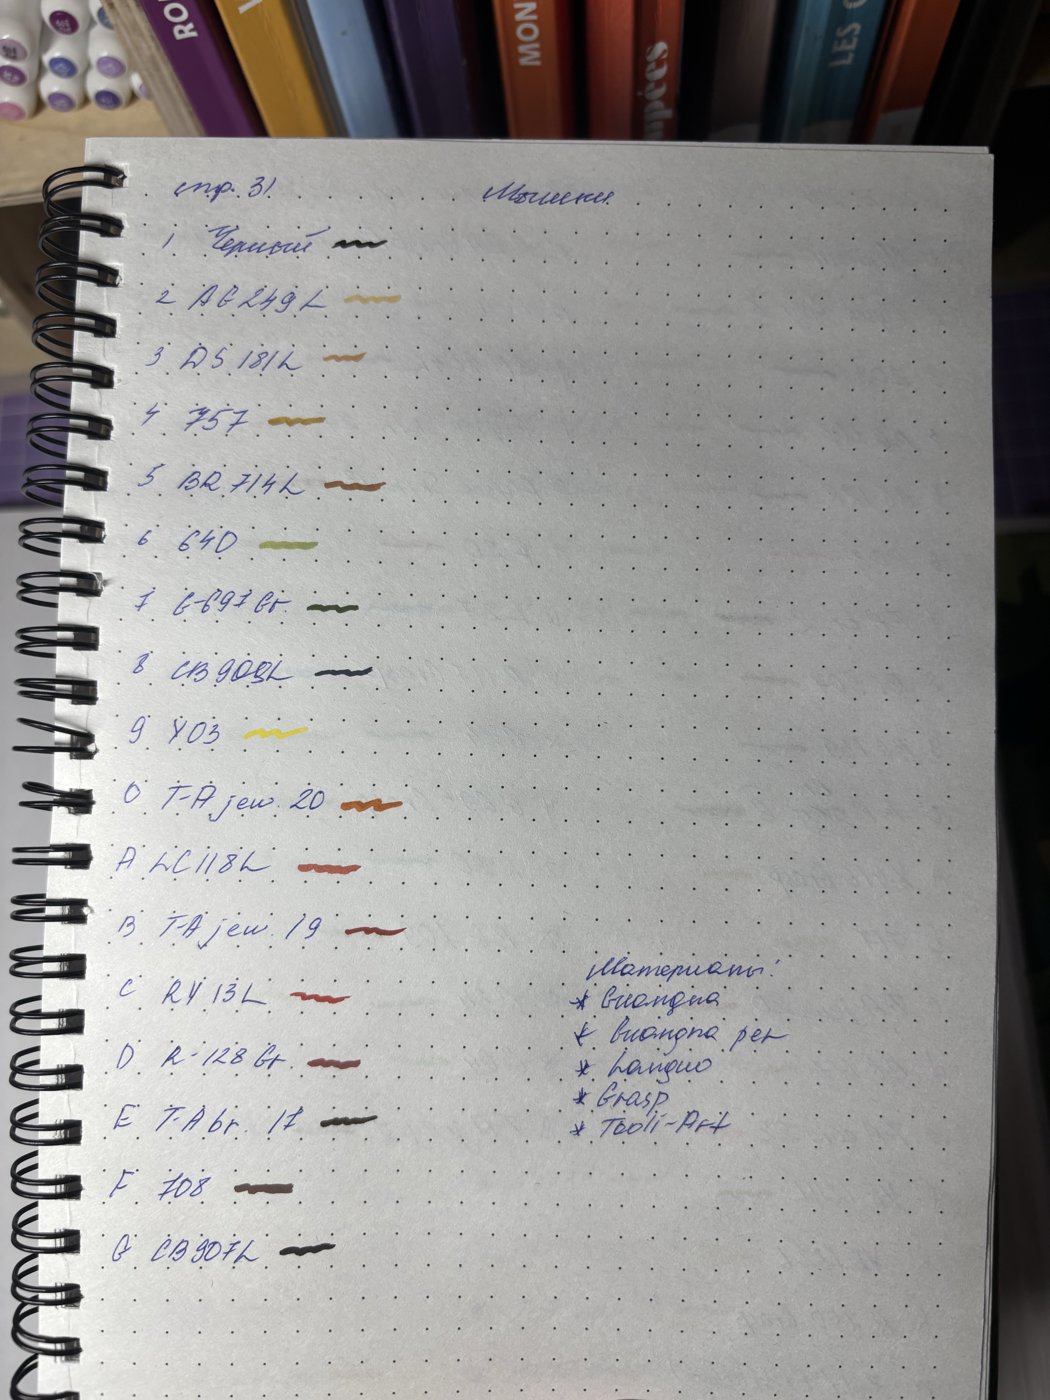 RO
MON
LES
upées
стр. 31
Мышки
1 Чёрный
2 AG 249 L
3 DS 181L
4 757
5 BR 714L
6 640
7 G-697 Gr.
8 CB 909L
9 Y03
0 T-A jew. 20
A LC118L
B T-A jew. 19
C RY 13L
D R-128 Gr.
E T-A br. 17
F 708
G CB907L
Материалы:
* Guangna
* Guangna per
* Languo
* Grasp
* Tooli-Art